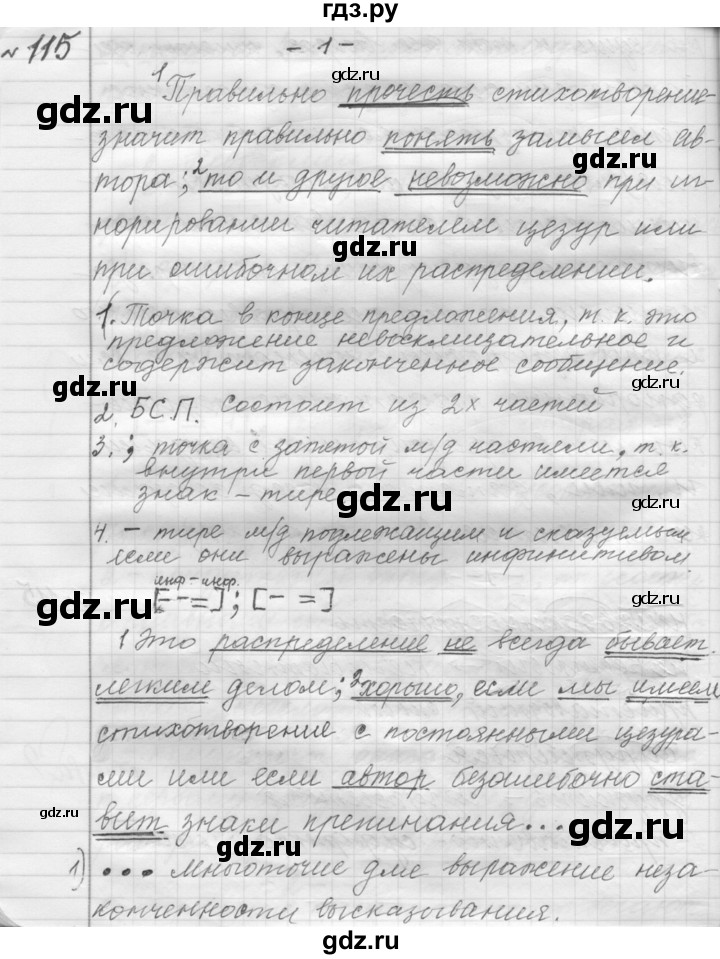 гдз.ру
№ 115 - 1 -
1 Правильно прочесть стихотворение-
значит правильно понять замысел ав-
gdz.ru
тора; 2 то и другое невозможно при иг-
норировании читателем цезур или
gdz.ru
при ошибочном их распределении.
1. Точка в конце предложения, т. к. это
предложение невосклицательное и
содержит законченное сообщение.
gdz.ru gdz.ru
2. БСП. Состоит из 2х частей
3. ; точка с запятой м/д частями, т. к.
gdz.ru
внутри первой части имеется
знак - тире
gdz.ru gdz.ru
4. – тире м/д подлежащим и сказуемым
если они выражены инфинитивом
инф-инф.
[– =]; [– =]
gdz.ru gdz.ru
1 Это распределение не всегда бывает
легким делом; 2 хорошо, если мы имеем
gdz.ru
стихотворение с постоянными цезура-
ми или если автор безошибочно ста-
gdz.ru gdz.ru
вит знаки препинания...
gdz.ru
1) ... многоточие для выражение неза-
gdz.ru
конченности высказывания.
gdz.ru
гдз.ру